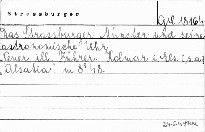 Strassburger
Das Strassburger Münster und seine
astronomische Uhr.
Neuer ill. Führer. Kolmar i. Els. (s.a.)
„Alsatia“ in 8° 48.